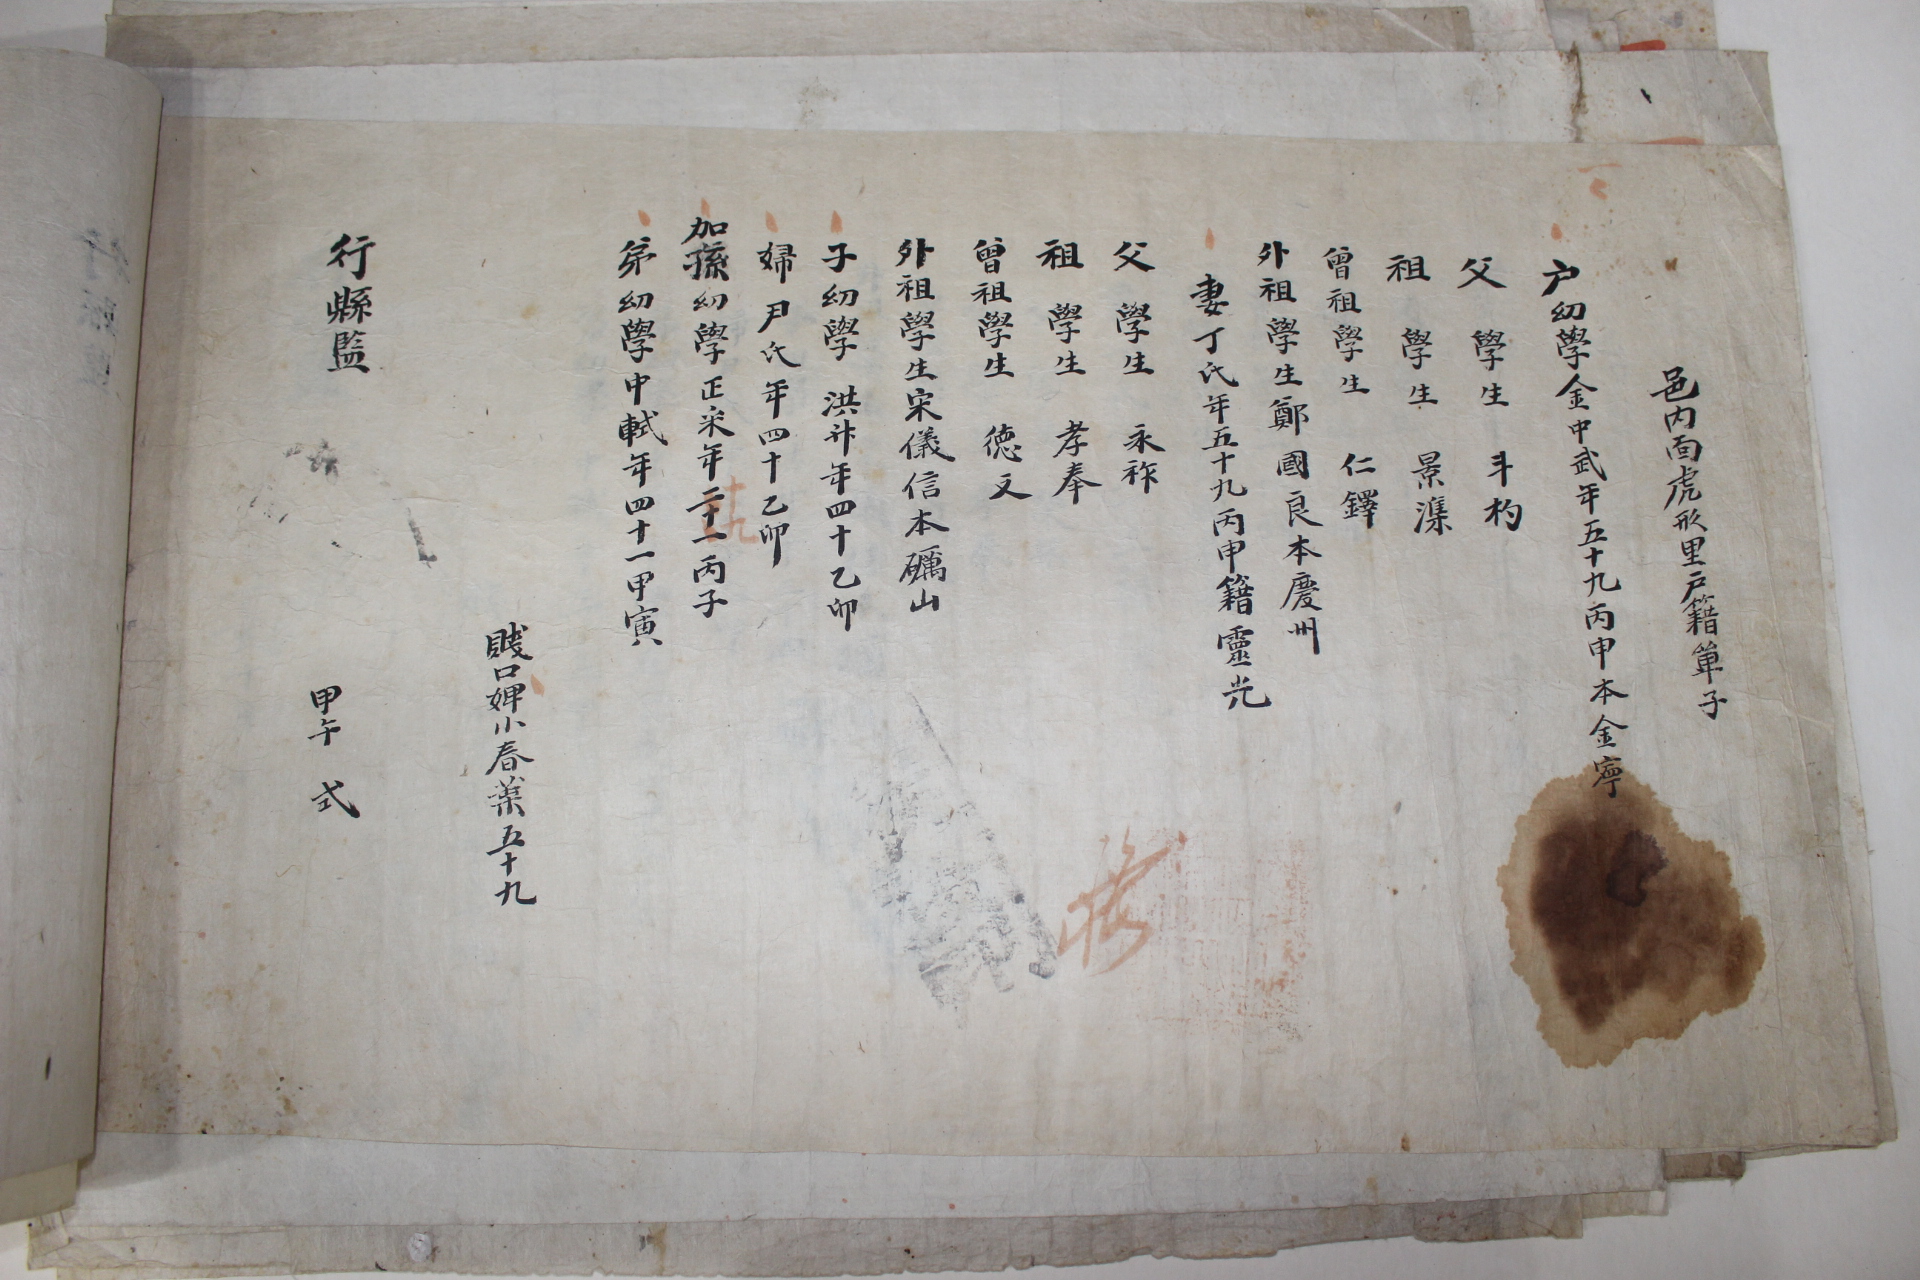 邑内面虎形里戶籍單子
戶幼學金中武年五十九丙申本金寧
父學生斗杓
祖學生景潗
曾祖學生仁鐸
外祖學生鄭國良本慶州
妻丁氏年五十九丙申籍靈光
父學生永祚
祖學生孝奉
曾祖學生德文
外祖學生宋儀信本礪山
子幼學洪 年四十乙卯
婦尹氏年四十乙卯
加孫幼學正采年二十一丙子
弟幼學中軾年四十一甲寅
賤口婢小春 五十九
行縣監
甲午式